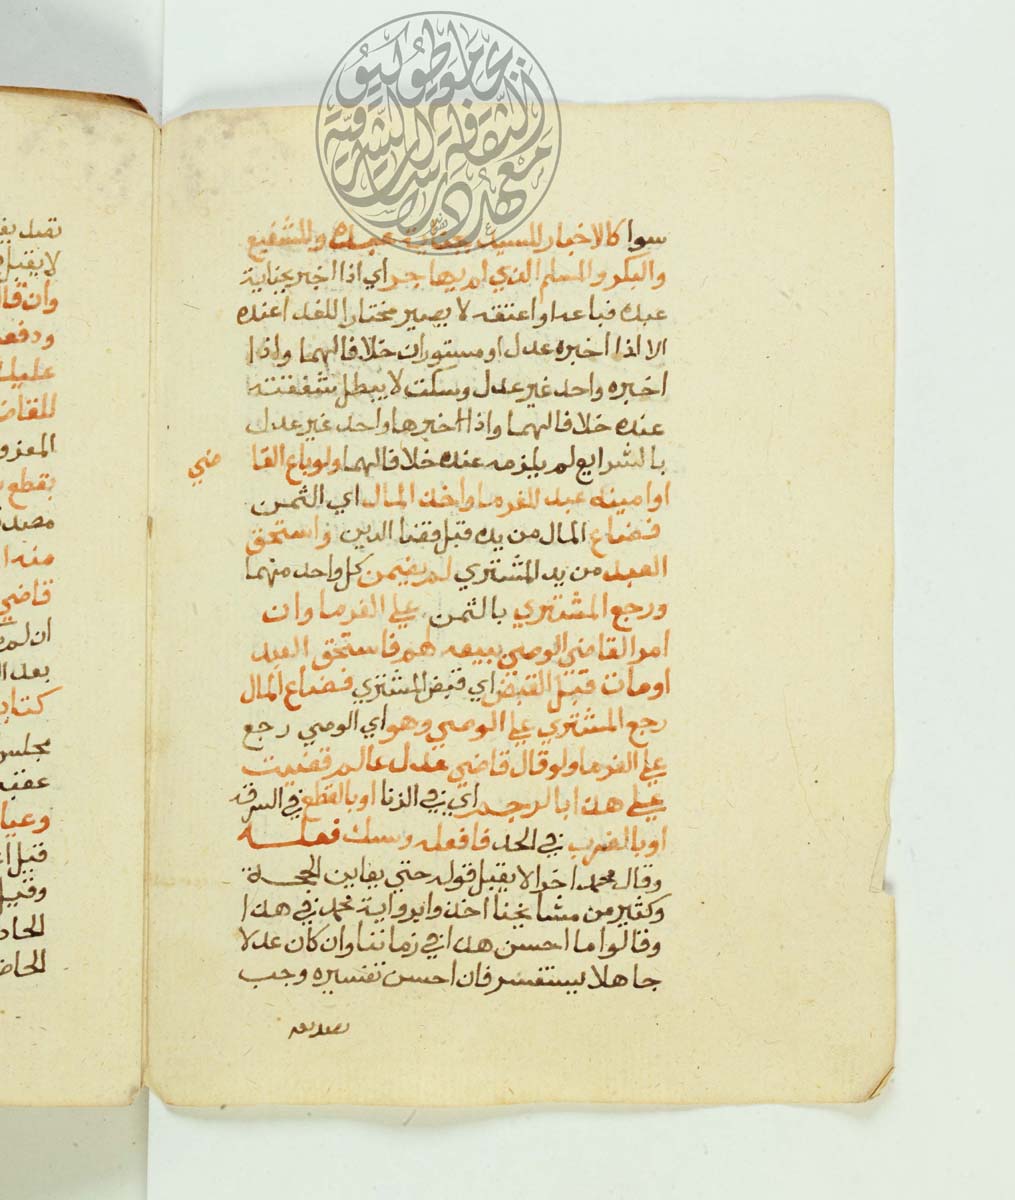 سوا كالاخبار للسيد بجناية عبده وللشفيع
والبكر والمسلم الذي لم يهاجر اي اذا اخبر بجناية
عبده فباعه او اعتقه لا يصير مختارا للفدا عنده
الا اذا اخبره عدل او مستوران خلافا لهما واذا
اخبره واحد غير عدل وسكت لا يبطل شفعته
عنده خلافا لهما واذا اخبرها واحد غير عدل
بالشرايع لم يلزمه عنده خلافا لهما ولو باع القا
ضي
او امينه عبد الغرما واخذ المال اي الثمن
فضاع المال من يده قبل قضا الدين واستحق
العبد من يد المشتري لم يضمن كل واحد منهما
ورجع المشتري بالثمن علي الغرما وان
امر القاضي الوصي ببيعه لهم فاستحق العبد
او مات قبل القبض اي قبض المشتري فضاع المال
رجع المشتري علي الوصي وهو اي الوصي رجع
علي الغرما ولو قال قاضي عدل عالم قضيت
علي هذا بالرجم اي في الزنا او بالقطع في السرقة
او بالضرب في الحد فافعله وسعك فعله
وقال محمد اخرا لا يقبل قوله حتي يعاين الحجة
وكثير من مشايخنا اخذوا برواية محمد في هذا
وقالوا ما احسن هذا في زماننا وان كان عدلا
جاهلا يستفسر فان احسن تفسيره وجب
تصديقه
وان قا
ودفعـ
عليك
للقاض
المعزو
بقطع
منه ا
قاضي
ان لم
بعد ال
كتاب
مجلس
قبل
الحا
الحاض